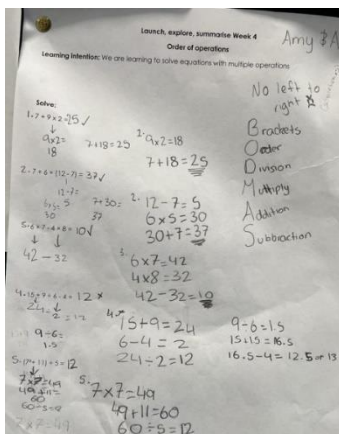 Launch, explore, summarise Week 4
Order of operations
Amy & A
Learning Intention: We are learning to solve equations with multiple operations
No left to
right
Brackets
Order
Division
Multiply
Addition
Subtraction
Solve:
1. 7+9×2=25 ✓
9×2=
18
7+18=25
1. 9×2=18
7+18=25
2. 7+6×(12-7)=37 ✓
12-7=
6×5=
30
5
7+30=
37
2. 12-7=5
6×5=30
30+7=37
10 ✓
42-32
3. 6×7=42
4×8=32
42-32=10
= 12 ×
24
2=12
9÷6=
1.5
4.
15+9=24
6-4=2
24÷2=12
9÷6=1.5
15+1.5=16.5
16.5-4=12.5 or 13
= 12
7×7=49
49+11=
60
60÷5=12
7×7=49
5.
7×7=49
49+11=60
60÷5=12